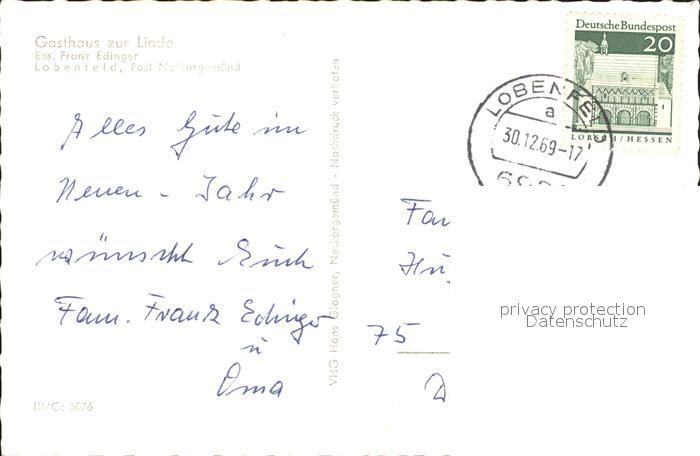 Gasthaus zur Linde
Bes. Franz Edinger
Lobenfeld, Post Neckargemünd
Alles Gute im
Neuen - Jahr
wünscht Euch
Fam. Franz Edinger
u
Oma
III/Cc 5076
VHG Hans Glogner, Neckargemünd - Nachdruck verboten
Deutsche Bundespost
20
LORSCH/HESSEN
LOBENFELD
a
30.12.69-17
Fam
75
privacy protection
Datenschutz